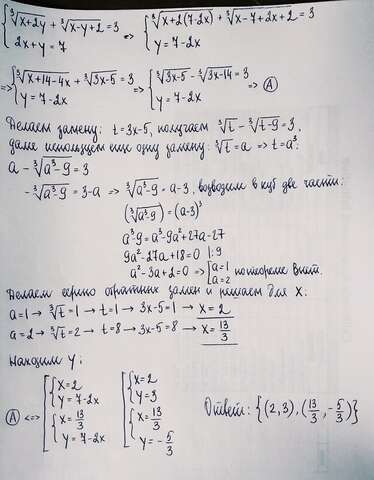 {∛(x+2y) + ∛(x-y+2) = 3 => {∛(x+2(7-2x)) + ∛(x-7+2x+2) = 3
2x+y=7 y=7-2x
=> {∛(x+14-4x) + ∛(3x-5) = 3 => {∛(3x-5) - ∛(3x-14) = 3 => Ⓐ
y=7-2x y=7-2x
Делаем замену: t=3x-5, получаем ∛t - ∛(t-9) = 3,
далее используем еще одну замену: ∛t = a => t=a³:
a - ∛(a³-9) = 3
-∛(a³-9) = 3-a => ∛(a³-9) = a-3, возводим в куб две части:
(∛(a³-9)) = (a-3)³
a³-9=a³-9a²+27a-27
9a²-27a+18=0 |:9
a²-3a+2=0 => [a=1 по теореме Виет.
a=2
Делаем серию обратных замен и решаем для x:
a=1 → ∛t=1 → t=1 → 3x-5=1 → x=2
a=2 → ∛t=2 → t=8 → 3x-5=8 → x=13/3
Находим y:
Ⓐ <=> [{x=2 [{x=2
y=7-2x y=3
{x=13/3 {x=13/3
y=7-2x y=-5/3
Ответ: {(2,3), (13/3, -5/3)}